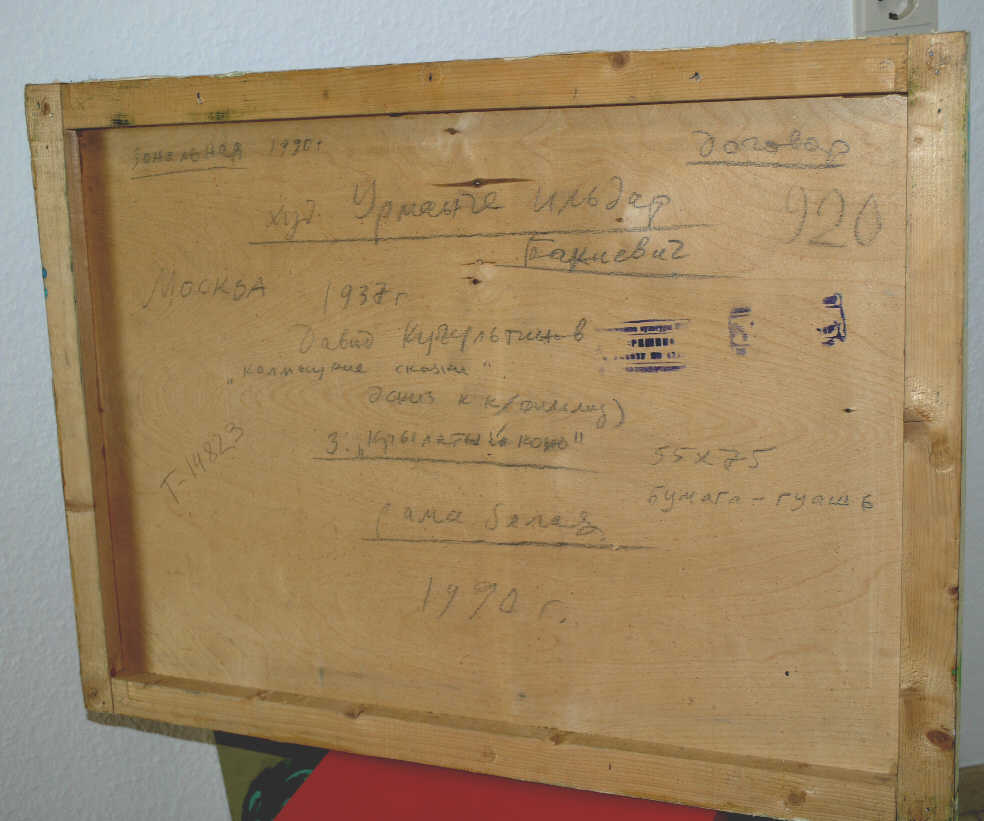 зональная 1990 г Договор
худ. Урманче Ильдар 920
Бакиевич
Москва 1937 г
Давид Кугультинов
"калмыцкие сказки"
Эскиз к к/фильму)
3. "Крылатый конь"
55х75
Т-14823
бумага - гуашь
рама белая
1990 г.